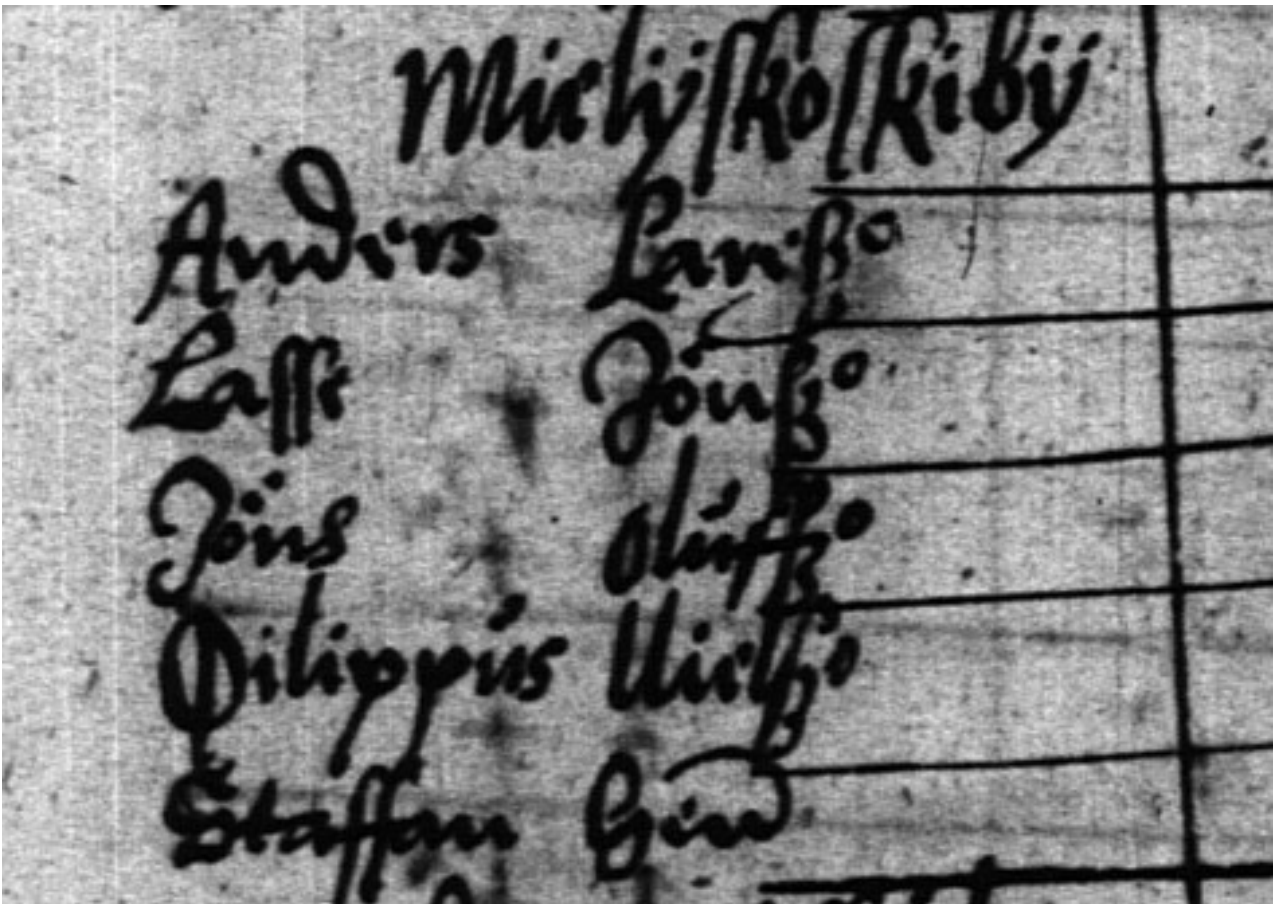 Mielÿskoskibÿ
Anders Larißo
Lasse Jönßo
Jöns Olufßo
Philippus Nielßo
Staffan Hind